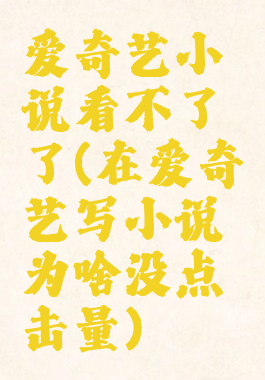 爱奇艺小
说看不了
了(在爱奇
艺写小说
为啥没点
击量)